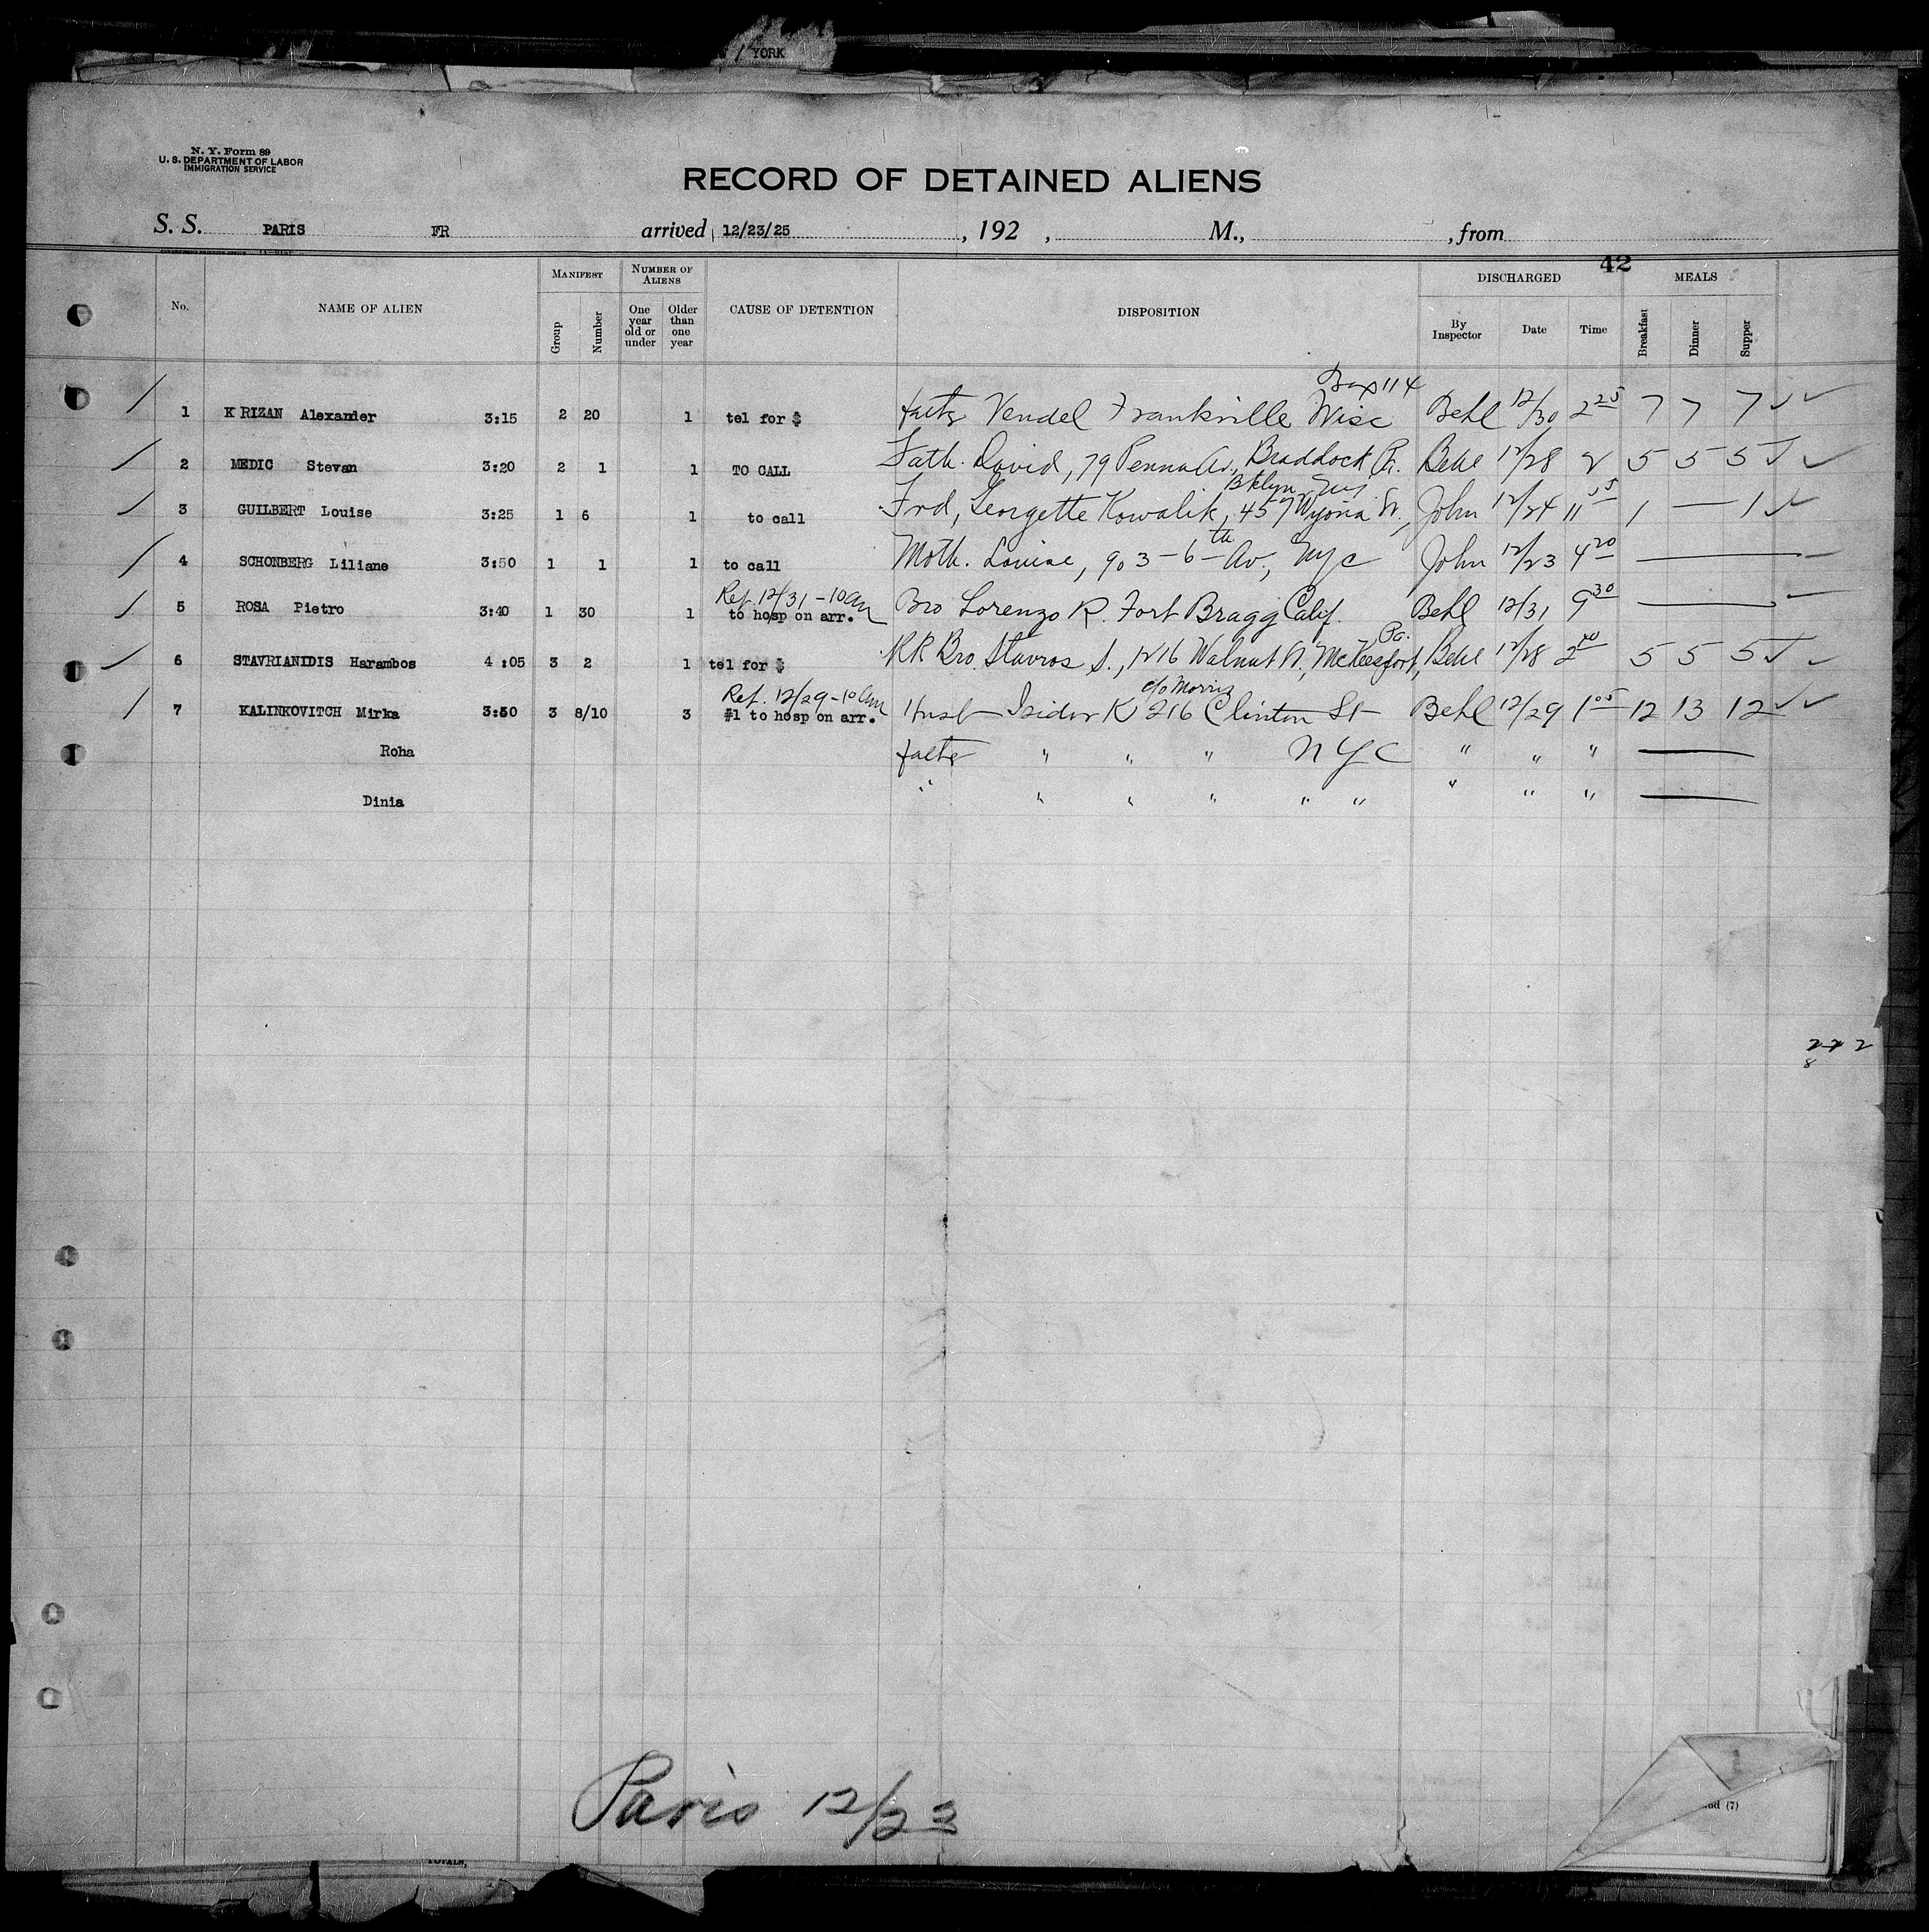 YORK
N. Y. Form 89
U. S. DEPARTMENT OF LABOR
IMMIGRATION SERVICE
RECORD OF DETAINED ALIENS
S. S. PARIS FR arrived 12/23/25 , 192 , M., , from
42
No. NAME OF ALIEN MANIFEST NUMBER OF ALIENS CAUSE OF DETENTION DISPOSITION DISCHARGED MEALS
Group Number One year old or under Older than one year By Inspector Date Time Breakfast Dinner Supper
Box 114
1 KRIZAN Alexander 3:15 2 20 1 tel for $ Vendel Franksville Wisc Behl 12/30 2 25 7 7 7
2 MEDIC Stevan 3:20 2 1 1 TO CALL Fath. David, 79 Penna Av., Braddock Pa. Behl 12/28 2 5 5 5
Bklyn
3 GUILBERT Louise 3:25 1 6 1 to call Frd, Georgette Kowalik, 457 Wyona St., John 12/24 11 55 1 — 1
4 SCHONBERG Liliane 3:50 1 1 1 to call Moth. Louise, 903-6th Av., NYC John 12/23 4 20 —
Ref. 12/31 - 10 am
5 ROSA Pietro 3:40 1 30 1 to hosp on arr. Bro Lorenzo R. Fort Bragg Calif. Behl 12/31 9 30 —
Pa.
6 STAVRIANIDIS Harambos 4:05 3 2 1 tel for $ RR Bro. Stavros S., 1216 Walnut St., McKeesport, Behl 12/28 2 5 5 5
Ref. 12/29 - 10 am c/o Morris
7 KALINKOVITCH Mirka 3:50 3 8/10 3 #1 to hosp on arr. Husb Isidor K 216 Clinton St Behl 12/29 1 05 12 13 12
Roha " " " NYC " " " —
Dinia " " " " " " " " " —
Paris 12/23
(7)
TOTALS,